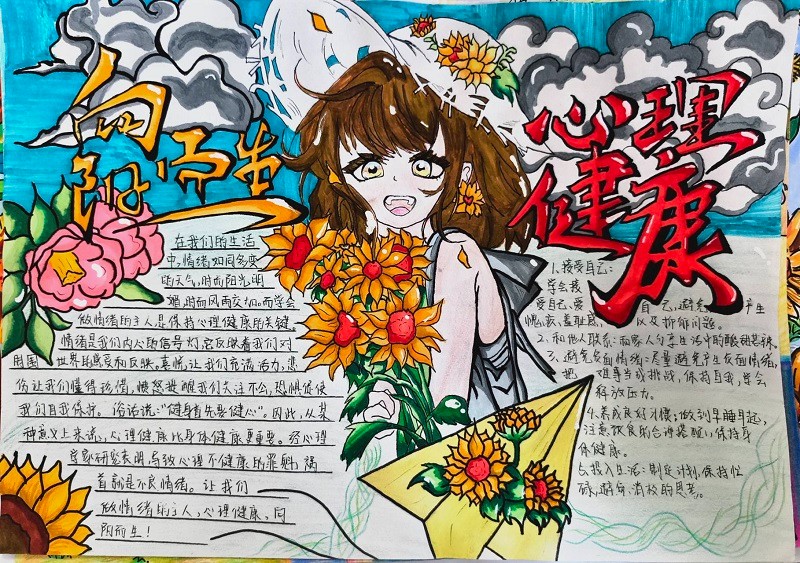 向阳而生
心理健康
在我们的生活
中,情绪如同多变
的天气,时而阳光明
媚,时而风雨交加。而学会
做情绪的主人是保持心理健康的关键。
情绪是我们内心的信号灯,它反映着我们对
周围世界的感受和反映。喜悦,让我们充满活力,悲
伤让我们懂得珍惜,愤怒提醒我们关注不公,恐惧促使
我们自我保护。俗话说:“健身者先要健心”。因此,从某
种意义上来说,心理健康比身体健康更重要。经心理
专家研究表明,导致心理不健康的罪魁祸
首就是不良情绪。让我们
做情绪的主人,心理健康,向
阳而生!
1、接受自己:
学会接
受自己、爱自己,避免产生
愧疚、羞耻感,以及抑郁问题。
2、和他人联系:和家人分享生活中的酸甜苦辣。
3、避免负面情绪:尽量避免产生负面情绪,
把难事当成挑战,保持自我,学会
释放压力。
4、养成良好习惯:做到早睡早起,
注意饮食的合理搭配,保持身
体健康。
5、投入生活:制定计划,保持忙
碌,避免消极的思考。